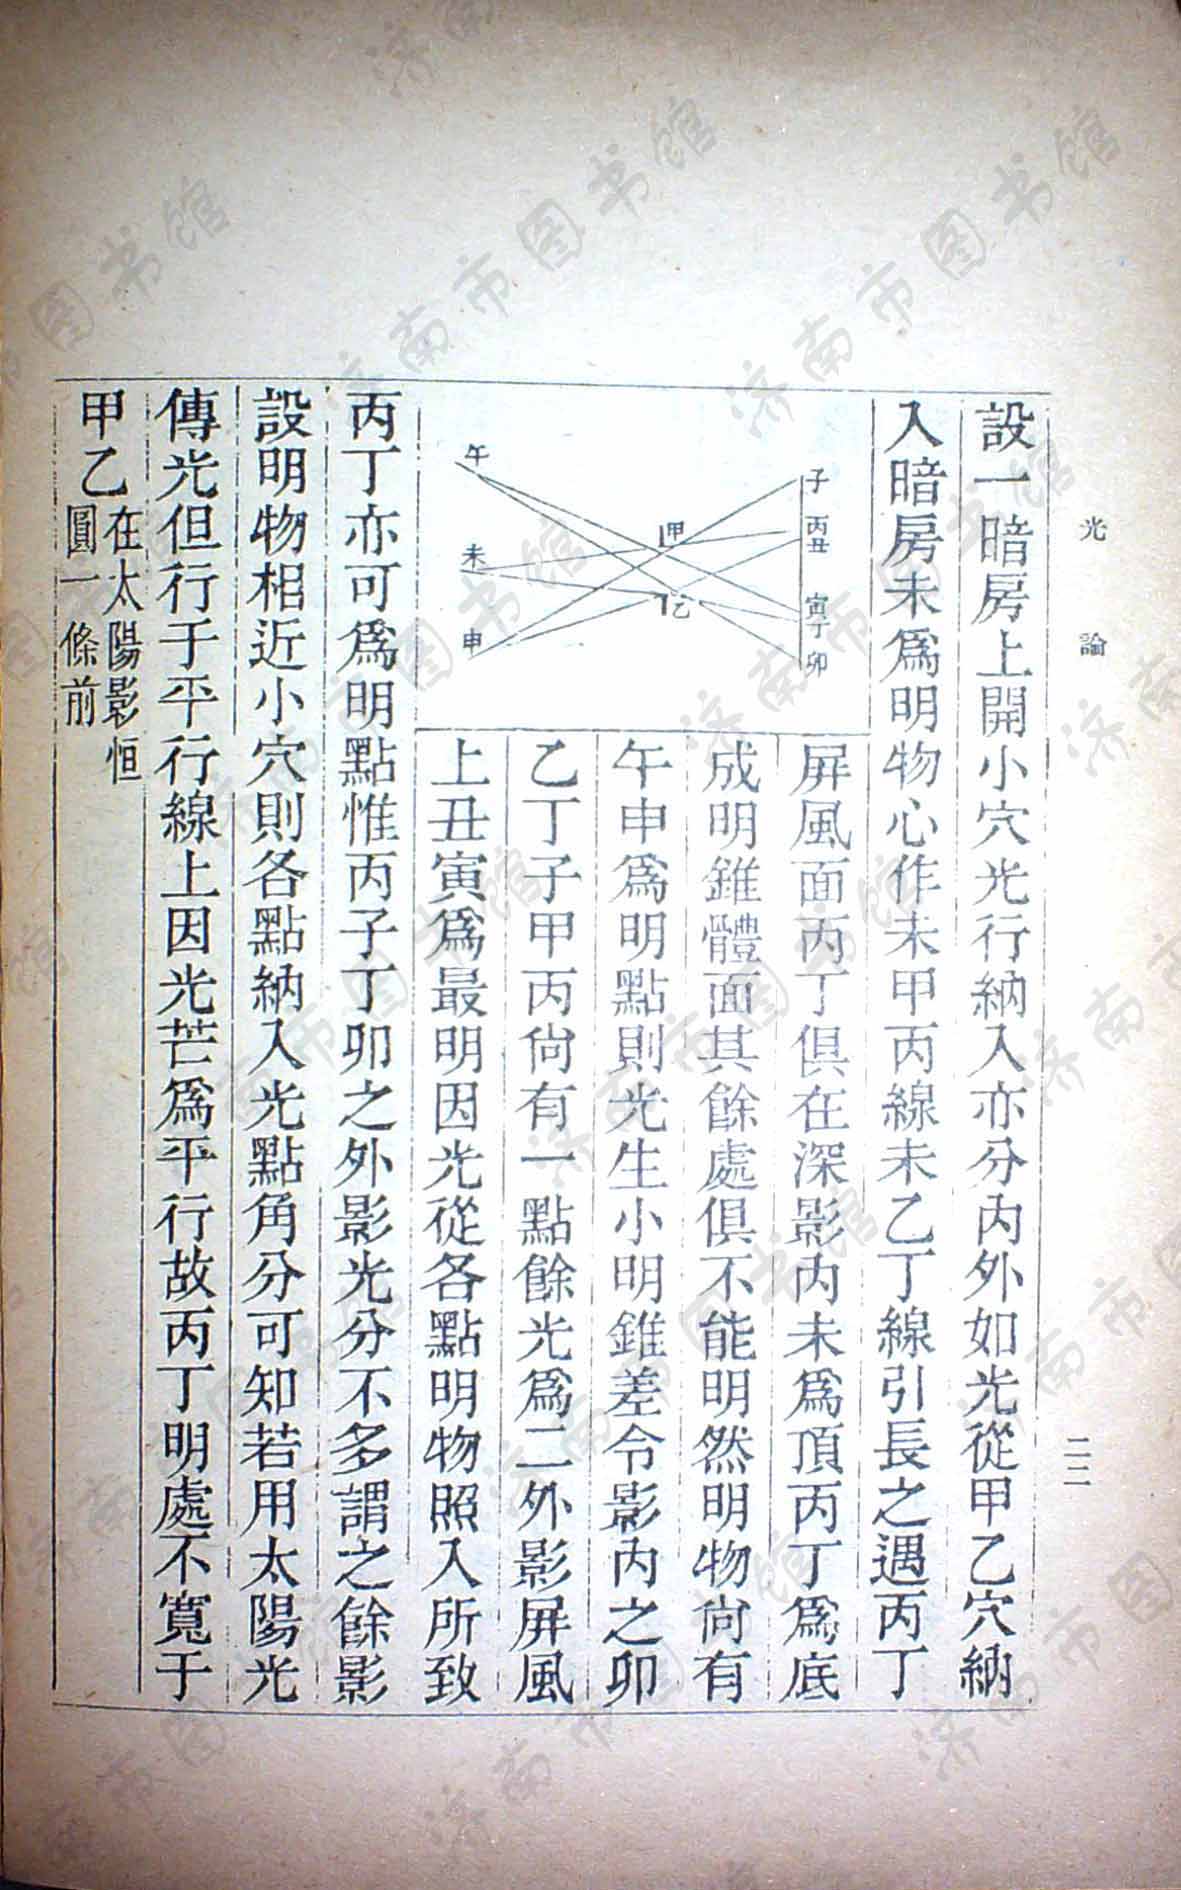 光論
二二
設一暗房上開小穴光行納入亦分內外如光從甲乙穴納
入暗房未爲明物心作未甲丙線未乙丁線引長之遇丙丁
午
未
申
甲
乙
子
丙
丑
寅
丁
卯
屏風面丙丁俱在深影內未爲頂丙丁爲底
成明錐體面其餘處俱不能明然明物尙有
午申爲明點則光生小明錐差令影內之卯
乙丁子甲丙尙有一點餘光爲二外影屏風
上丑寅爲最明因光從各點明物照入所致
丙丁亦可爲明點惟丙子丁卯之外影光分不多謂之餘影
設明物相近小穴則各點納入光點角分可知若用太陽光
傳光但行于平行線上因光芒爲平行故丙丁明處不寬于
甲乙在太陽影恒
圓一條前
济南市图书馆